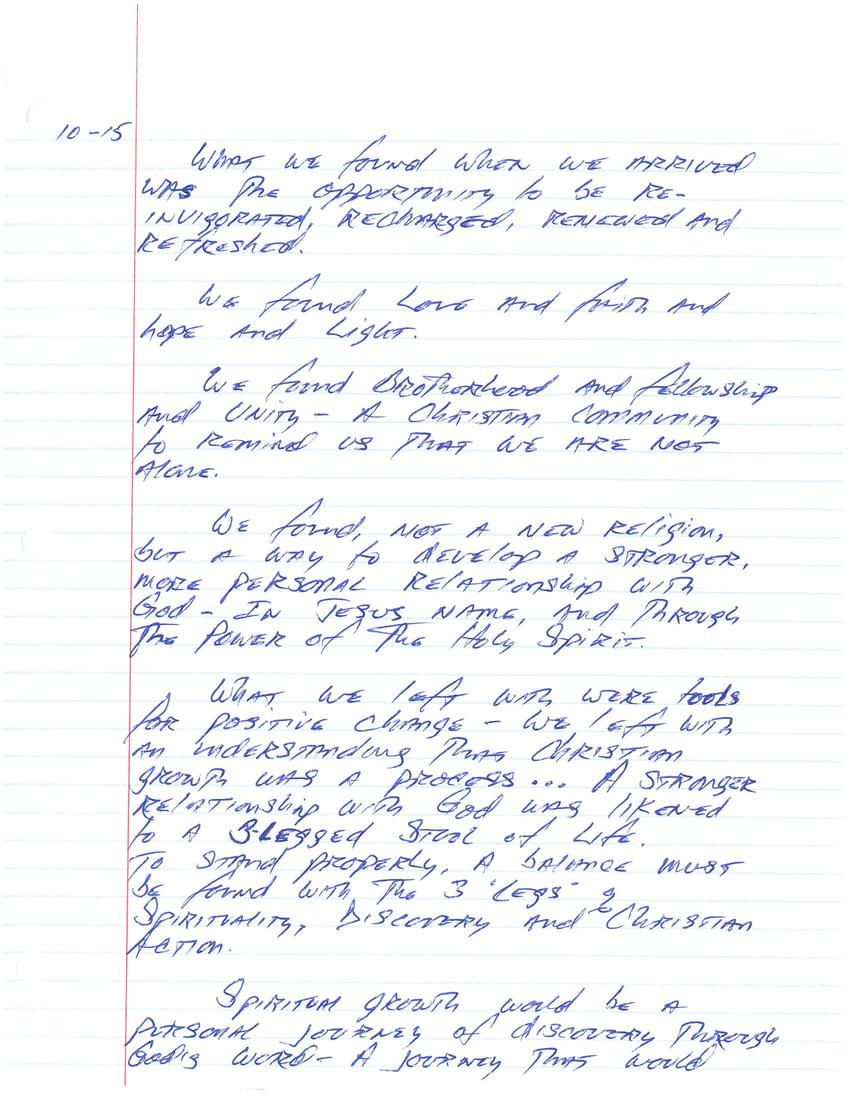 10-15
What we found when we arrived
was the opportunity to be re-
invigorated, recharged, renewed and
refreshed.
We found Love and faith and
hope and Light.
We found Brotherhood and fellowship
and Unity - A Christian Community
to remind us that we are not
alone.
We found, not a new religion,
but a way to develop a stronger,
more personal relationship with
God - In Jesus name, and through
the Power of the Holy Spirit.
What we left with were tools
for positive change - We left with
an understanding that Christian
growth was a process... A stronger
relationship with God was likened
to a 3-Legged Stool of Life.
To stand properly, a balance must
be found with the 3 "Legs"
Spirituality, Discovery and Christian
Action.
Spiritual growth would be a
personal journey of discovery through
God's word - A journey that would